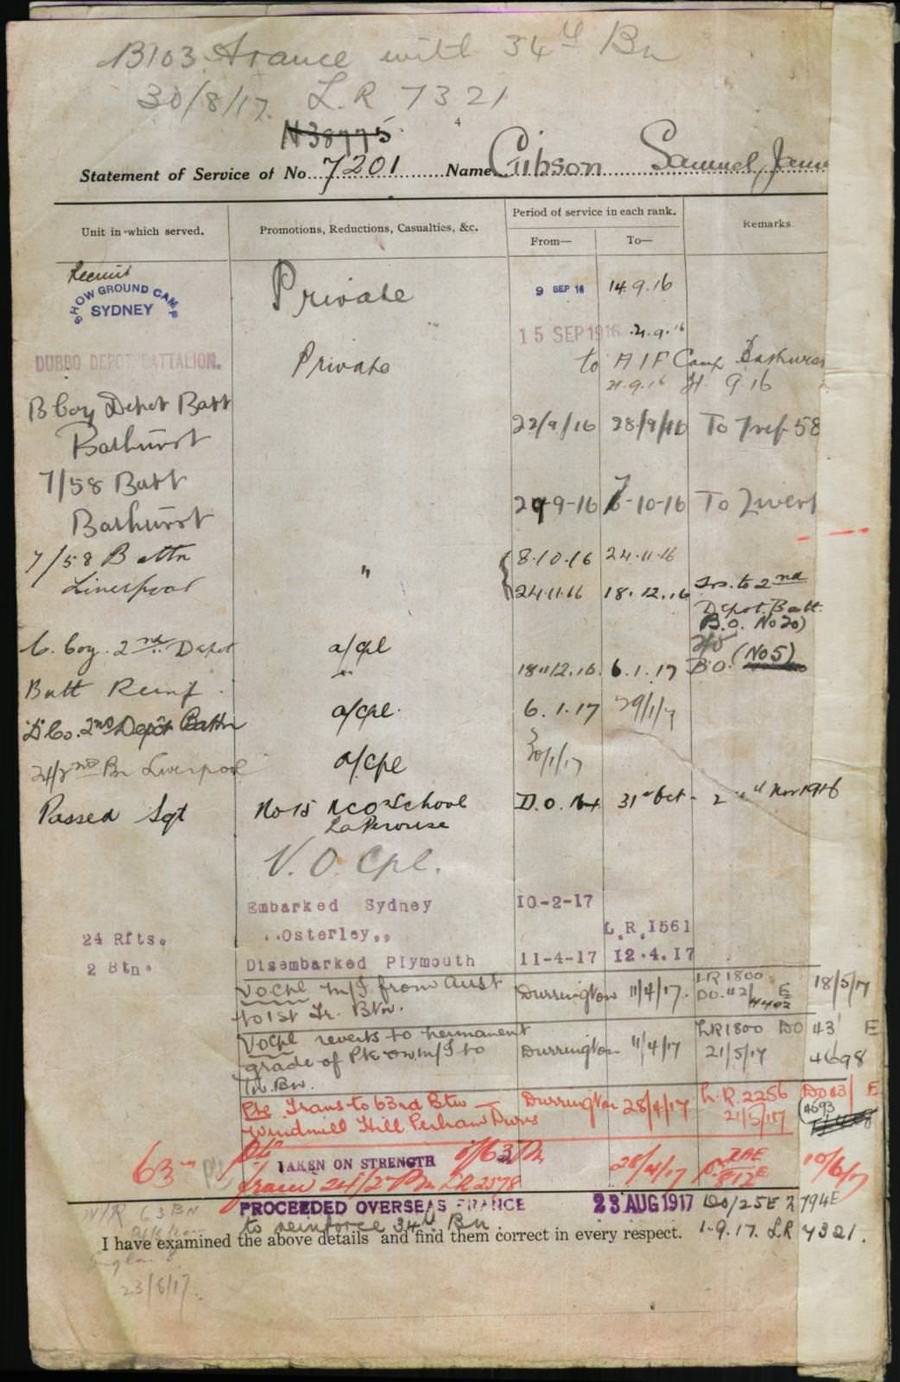 B103 France with 34th Bn
30/8/17. L.R 7321
N38775
4
Statement of Service of No 7201 Name Gibson Samuel, James
Unit in which served. Promotions, Reductions, Casualties, &c. Period of service in each rank. Remarks
From— To—
Recruit
SHOW GROUND CAMP SYDNEY Private 9 SEP 16 14.9.16
DUBBO DEPOT BATTALION. Private 15 SEP 1916 21.9.16
to AIF Camp
21.9.16 9 16
B Coy Depot Batt
Bathurst 22/9/16 28/9/16 To 7 ref 58
7/58 Batt
Bathurst 29-9-16 7-10-16 To
7/58 Battn " 8.10.16 24.11.16
Liverpool 24.11.16 18.12.16 Trs. to 2nd
Depot Batt.
B.O. No 20)
C. Coy. 2nd Depot a/cpl 18.12.16. 6.1.17 B.O. (No5)
Batt Reinf.
D Co. 2nd Depot Battn a/cpl. 6.1.17 29/1/17
24/2nd Bn Liverpool a/cpl 30/1/17
Passed Sgt No 15 NCO School D.O. 31st Oct - 2nd Nov 1916
La Perouse
V.O. Cpl.
Embarked Sydney 10-2-17
24 Rfts. ..Osterley,, L.R.1561
2 Btn. Disembarked Plymouth 11-4-17 12.4.17
VO Cpl M/I from Aust Durrington 11/4/17. LR 1800 18/5/17
to 1st Tr. Btn. DO. 112/ 4402 E
VO Cpl reverts to permanent Durrington 11/4/17 LR1800 DO 43 E
grade of Pte on m/I to 21/5/17 4698
Tr. Bn.
Pte Trans to 63rd Btn — Durrington 28/4/17 L.R. 2256 DO 83/ E
Windmill Hill Perham Downs 21/5/17 4693
63rd Pte TAKEN ON STRENGTH 28/4/17 10/6/17
from 24/2 Bn LR2378
W/R 63 BN PROCEEDED OVERSEAS FRANCE 23 AUG 1917 DO/25E 2794E
to reinforce 34th Bn 1.9.17. LR 7321.
I have examined the above details and find them correct in every respect.